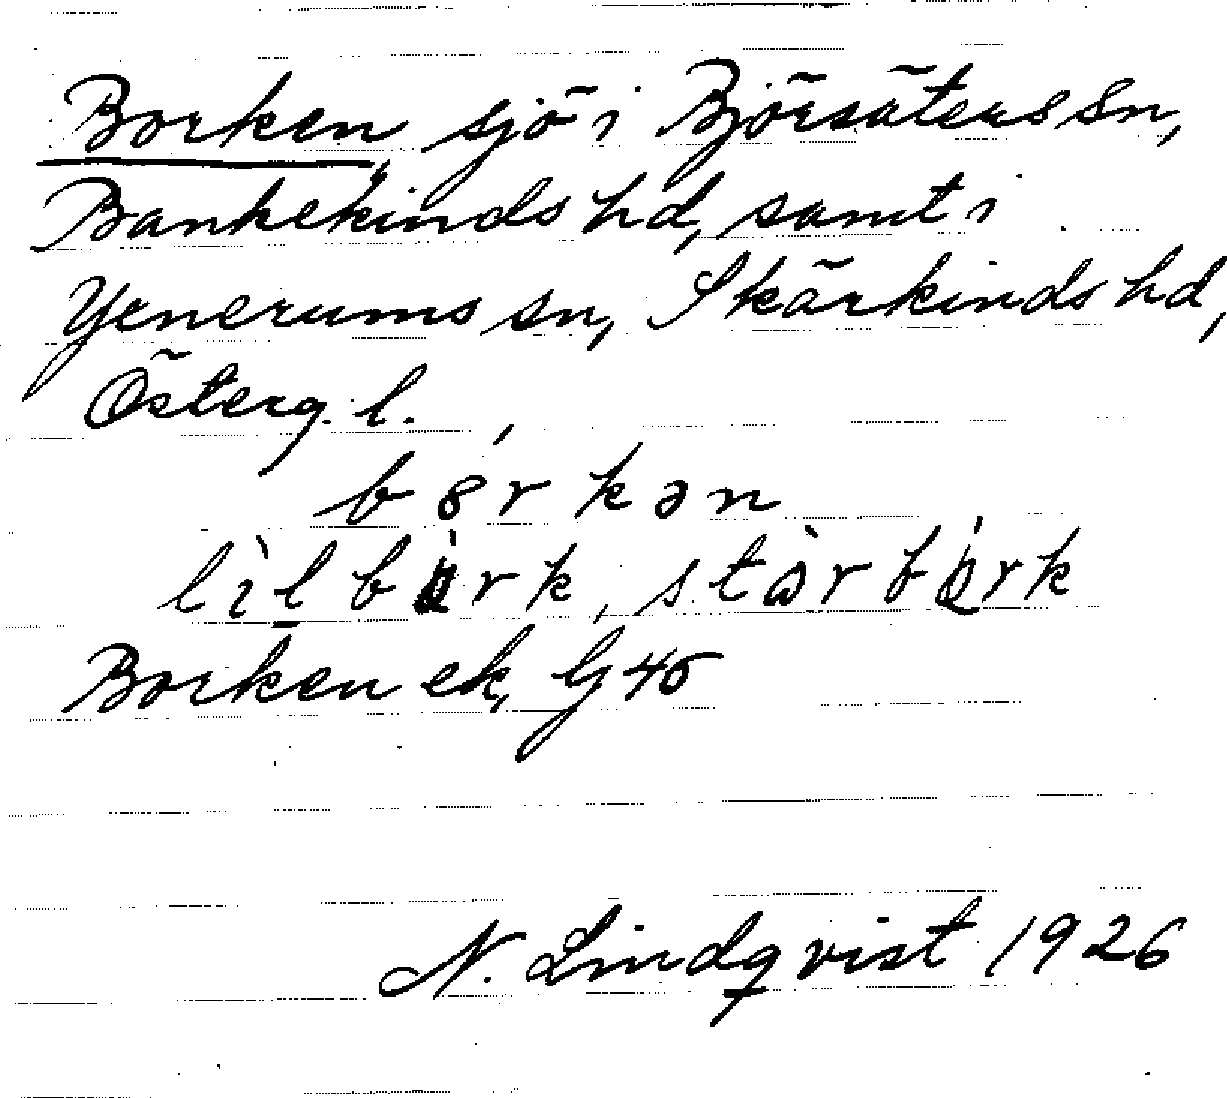 Borken, sjö i Björsäters sn,
Bankekinds hd, samt i
Yxnerums sn, Skärkinds hd,
Österg. l.
børkən
lìlbørk, stòrbørk
Borken ek, G 45
N. Lindqvist 1926